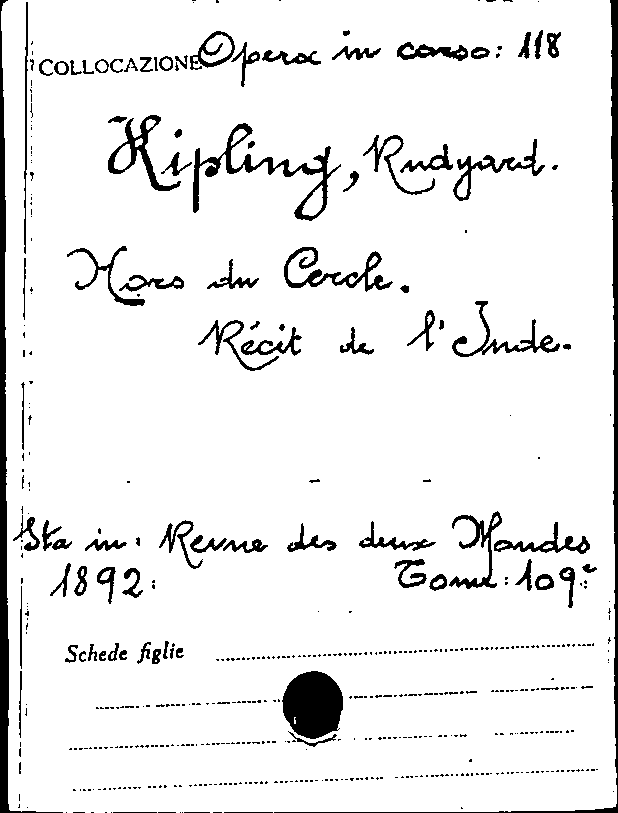 COLLOCAZIONE Opera in corso: 118
Kipling, Rudyard.
Hors du Cercle.
Récit de l'Inde.
Sta in: Revue des deux Mondes
1892: Tome: 109e
Schede figlie